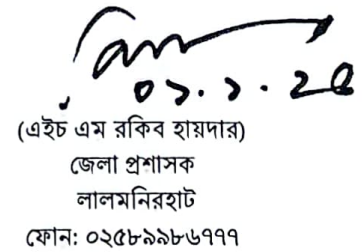 ০১.১.২৫
(এইচ এম রকিব হায়দার)
জেলা প্রশাসক
লালমনিরহাট
ফোন: ০২৫৮৯৯৮৬৭৭৭